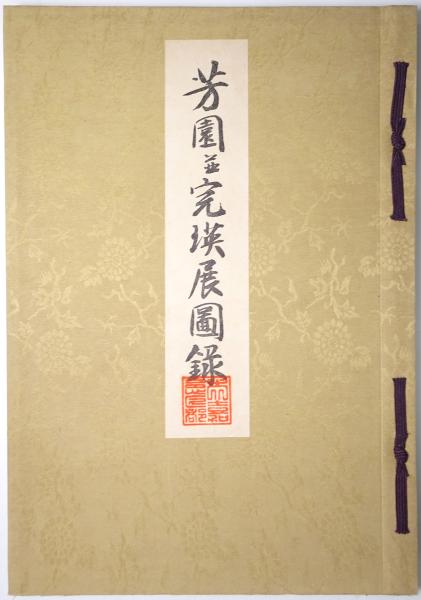 芳園並完瑛展圖録